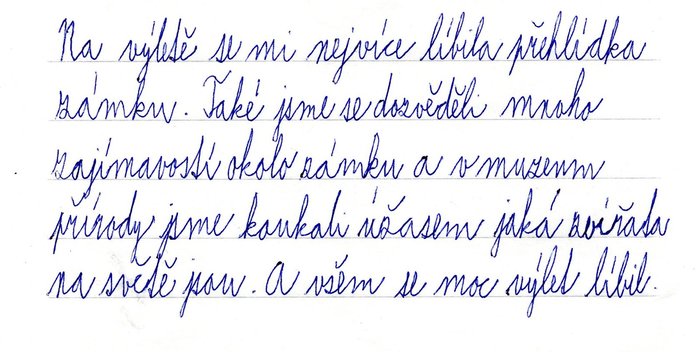 Na výletě se mi nejvíce líbila přehlídka
zámku. Také jsme se dozvěděli mnoho
zajímavostí okolo zámku a v muzeum
přírody jsme koukali úžasem jaká zvířata
na světě jsou. A všem se moc výlet líbil.